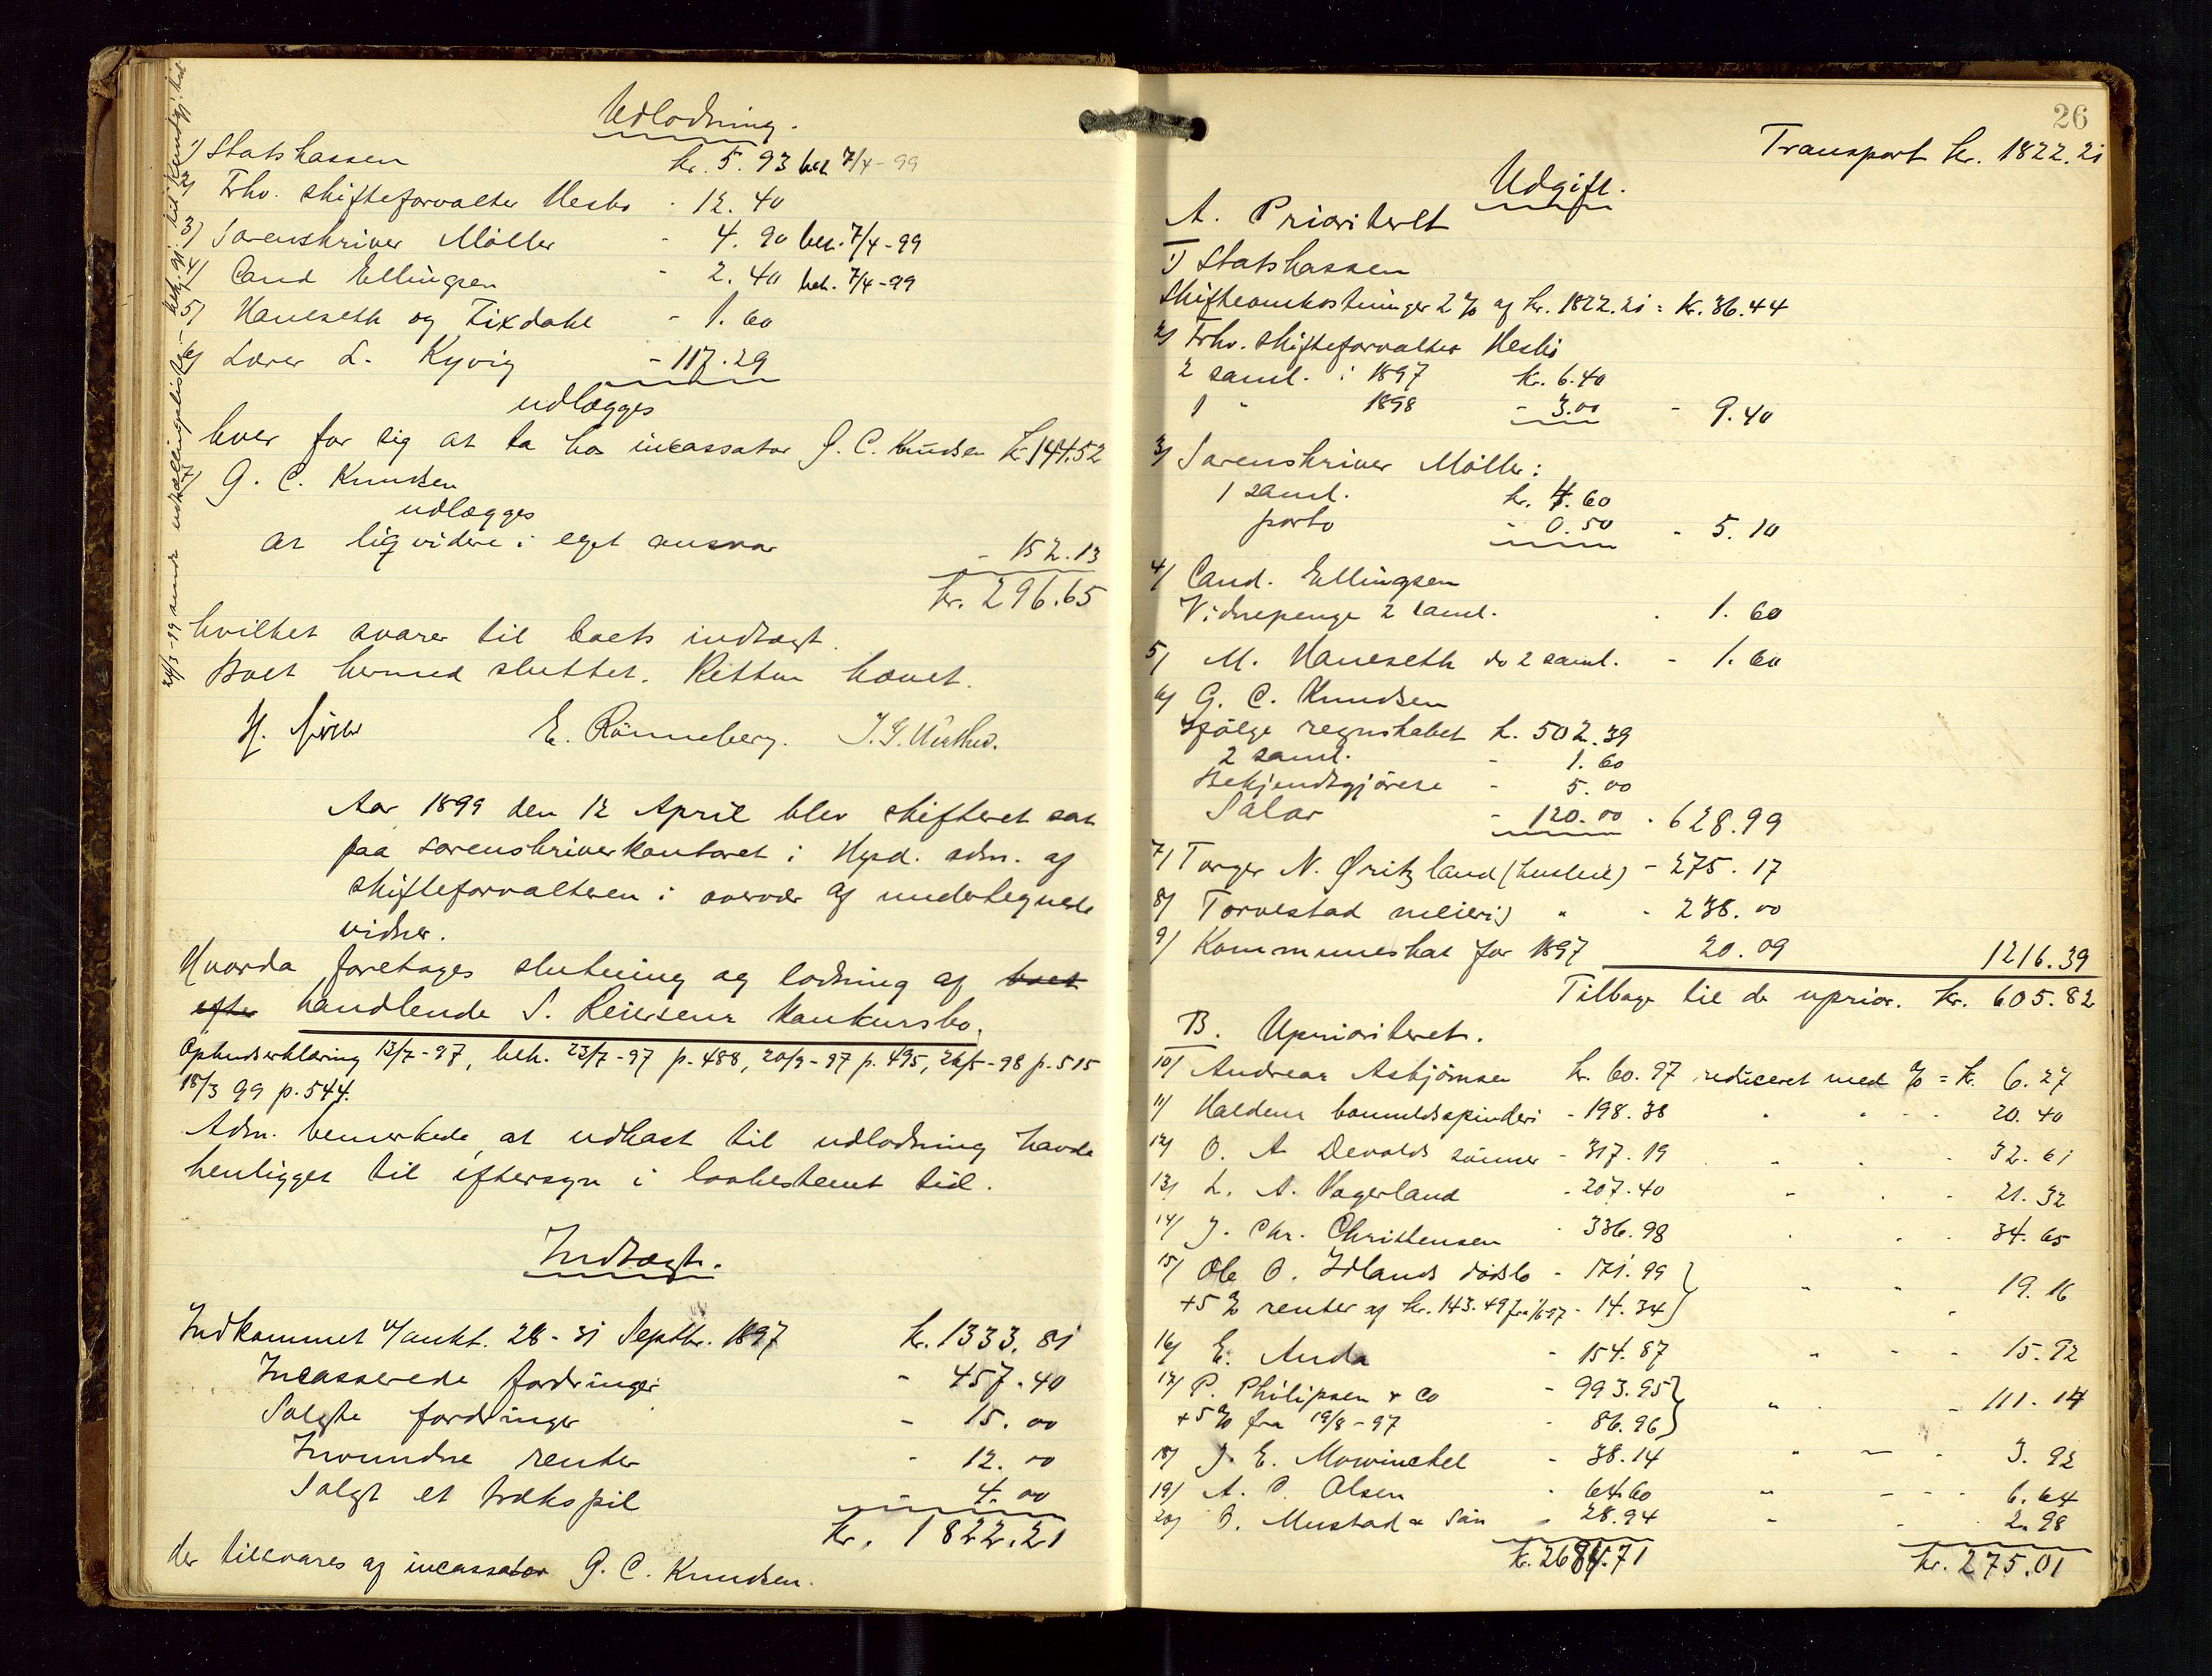 Udlodning.
1) Statskassen kr. 5.93 bet. 7/4-99
2) Frhv. skifteforvalter Hesbø - 12.40
3) Sorenskriver Möller - 4.90 bet. 7/4-99
4) Cand Ellingsen - 2.40 bet. 7/4-99
5) Haneseth og Tixdahl - 1.60
6) Lærer L. Kyvig - 117.29
udlægges
hver for sig at ta hos incassator G. C. Knudsen kr 144.52
7) G. C. Knudsen
udlægges
at liqvidere i eget ansvar - 152.13
kr. 296.65
hvilket svarer til boets indtægt.
Boet hermed sluttet. Retten hævet.
E. Rönneberg.
Aar 1899 den 12 April blev skifteret sat
paa sorenskriverkontoret i Hgsd. adm. af
skifteforvalteren i overvær af undertegnede
vidner.
Hvorda foretoges slutning og lodning af boet
efter handlende S. Reiersens konkursbo.
Ophudserklæring 13/7-97, beh. 23/7-97 p. 488, 20/9-97 p. 495, 26/5-98 p. 515
18/3 99 p. 544.
Adm. bemerkede at udkast til udlodning havde
henligget til eftersyn i lovbestemt tid.
Indtægt.
Indkommet v/aukt. 28-31 Septbr. 1897 kr. 1333.81
Incasserede fordringer - 457.40
Solgte fordringer - 15.00
Invundne renter - 12.00
Solgt et trækspil - 4.00
kr. 1822.21
der tilsvares af incassator G. C. Knudsen.
26
Transport kr. 1822.21
Udgift.
A. Prioriteret
1) Statskassen
Skifteomkostninger 2 % af kr. 1822.21 = kr. 36.44
2) Frhv. skifteforvalter Hesbø
2 saml. i 1897 kr. 6.40
1 " 1898 - 3.00 - 9.40
3) Sorenskriver Möller:
1 saml. kr. 4.60
porto - 0.50 - 5.10
4) Cand. Ellingsen
Vidnepenge 2 saml. - 1.60
5) M. Haneseth do 2 saml. - 1.60
6) G. C. Knudsen
Ifølge regnskabet kr. 502.39
2 saml. - 1.60
Bekjendtgjörelse - 5.00
Salær - 120.00 - 628.99
7) Torger N. Øritzland (husleie) - 275.17
8) Torvestad meieri) " - 238.00
9) Kommuneskat for 1897 20.09 1216.39
Tilbage til de uprior. kr. 605.82
B. Uprioriteret.
10) Andreas Asbjörnsen kr. 60.97 reduceret med % = kr. 6.27
11) Haldens bomuldsspinderi - 198.38 " " - - 20.40
12) O. A Devolds sönner - 317.19 " " - 32.61
13) L. A. Vagerland - 207.40 " " - 21.32
14) J. Chr. Christensen - 336.98 " " - 34.65
15) Ole O. Idlands dödsbo - 171.99 } " " 19.16
+5 % renter af kr. 143.49 fra 1/6 97 - 14.34 }
16) E. Anda - 154.87 " - - 15.92
17) P. Philipsen & Co - 993.95 } " - 111.14
+5 % fra 19/8-97 - 86.96 }
18) J. E. Mowinckel - 38.14 " - - 3.92
19) A. C. Olsen - 64.60 " - - - 6.64
20) O. Mustad & Sön - 28.94 " - 2.98
kr. 2684.71 kr. 275.01